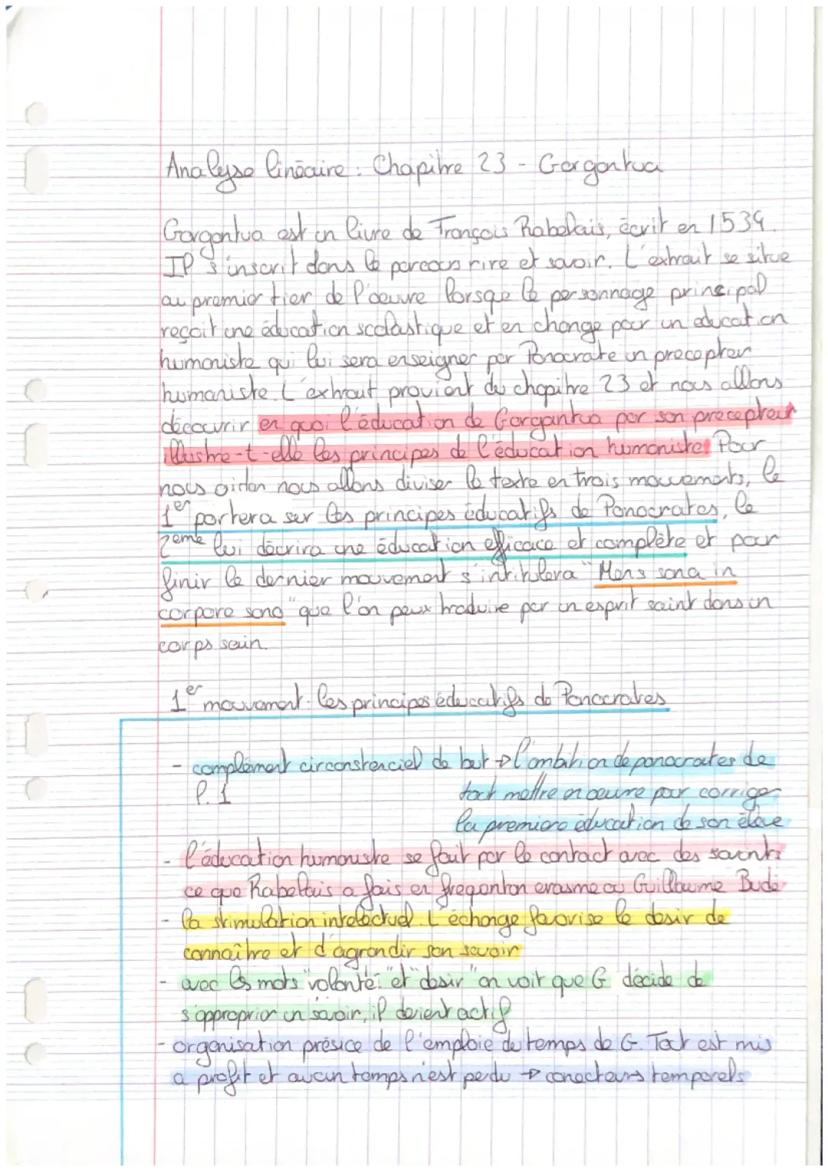 Analyse linéaire : Chapitre 23 - Gargantua
Gargantua est un livre de François Rabelais, écrit en 1534.
Il s'inscrit dans le parcours rire et savoir. L'extrait se situe
au premier tier de l'oeuvre lorsque le personnage principal
reçoit une éducation scolastique et en change pour un education
humaniste qui lui sera enseigner par Ponocrate un precepteur
humaniste. L'extrait provient du chapitre 23 et nous allons
découvrir en quoi l'éducation de Gargantua par son precepteur
illustre-t-elle les principes de l'éducation humaniste. Pour
nous aider nous allons diviser le texte en trois mouvements, le
1er portera sur les principes éducatifs de Ponocrates, le
2eme lui décrira une éducation efficace et complète et pour
finir le dernier mouvement s'intitulera "Mens sana in
corpore sano" que l'on peux traduire par un esprit saint dans un
corps sain.
1er mouvement : les principes éducatifs de Ponocrates
- complément circonstenciel de but → l'ambition de ponocrates de
l. 1 tout mettre en oeuvre pour corriger
la premiere éducation de son élève
- l'éducation humaniste se fait par le contact avec des savants
ce que Rabelais a fais en fréquenton erasme ou Guillaume Budé
- la stimulation intelectuel L'échange favorise le desir de
connaître et d'agrandir son savoir
- avec les mots "volonté" et "desir" on voit que G décide de
s'approprier un savoir, il devient actif
- organisation présice de l'emploie du temps de G. Tout est mis
a profit et aucun temps n'est perdu → conecteurs temporels